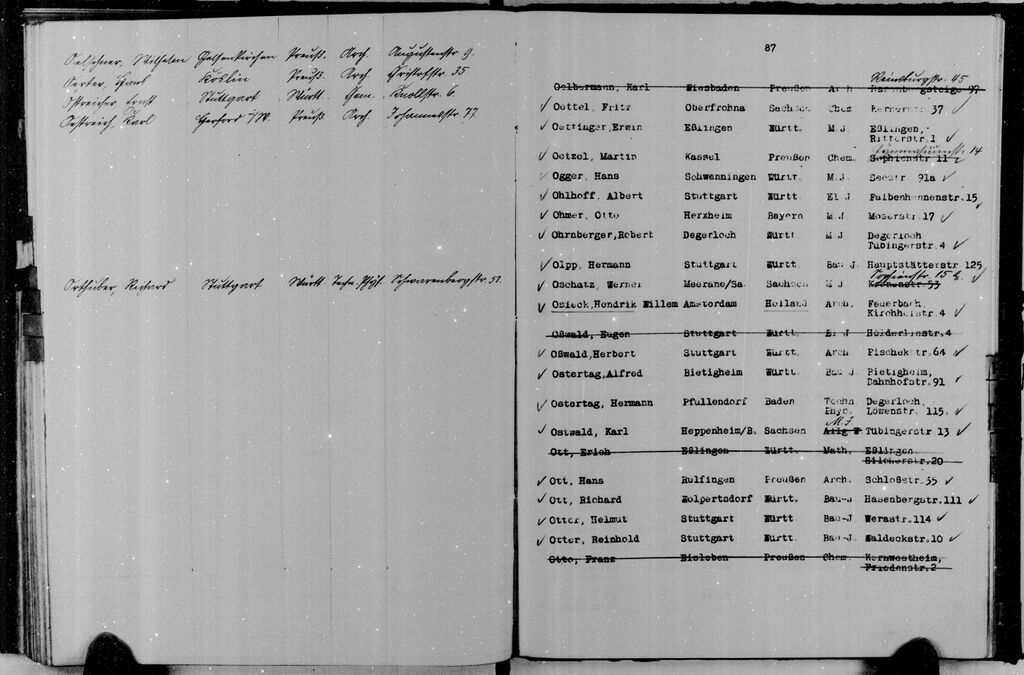 Oelschner, Wilhelm Gelsenkirchen Preuß. Arch. Augustenstr 9.
Oerter, Hans Köslin Preuß. Arch 35
Ostreicher Ernst Stuttgart Württ. Knollstr. 6
Oestreich, Karl Herford i/W. Preuß. Arch. Johannesstr 77
Orthuber, Richard Stuttgart Württ Techn. Phys. Schwarenbergstr. 51.
87
Reinsburgstr. 45
Oelbermann, Karl Wiesbaden Preußen Arch Hasenbergsteige 97
✓ Oettel, Fritz Oberfrohna Sachsen Chem. Kernerstr 37 ✓
✓ Oettinger, Erwin Eßlingen Württ. M.J. Eßlingen,
Ritterstr.1 ✓
14
✓ Oetzel, Martin Kassel Preußen Chem. Sophienstr 11
✓ Ogger, Hans Schwenningen Württ. M.J. Seestr 91a ✓
✓ Ohlhoff, Albert Stuttgart Württ El J. Falbenhennenstr.15 ✓
✓ Ohmer, Otto Herxheim Bayern M.J. Moserstr.17 ✓
✓ Ohrnberger,Robert Degerloch Württ M J Degerloch
Tübingerstr.4 ✓
✓ Olpp, Hermann Stuttgart Württ. Bau J. Hauptstätterstr 125
Sophienstr. 15 b. ✓
✓ Oschatz, Werner Meerane/Sa. Sachsen M J
✓ Osieck,Hendrik Willem Amsterdam Holland Arch. Feuerbach,
Kirchheistr.4 ✓
Oßwald, Eugen Stuttgart Württ. El J Hölderlinstr.4
✓ Oßwald,Herbert Stuttgart Württ. Arch Pischekstr.64 ✓
✓ Ostertag,Alfred Bietigheim Württ. Bau J. Bietigheim,
Bahnhofstr.91 ✓
✓ Ostertag, Hermann Pfullendorf Baden Techn. Degerloch,
Phys. Löwenstr. 115. ✓
M.J.
✓ Ostwald, Karl Heppenheim/B. Sachsen Allg W Tübingerstr.13 ✓
Ott, Erich Eßlingen Württ. Math. Eßlingen,
Silcherstr.20
✓ Ott, Hans Rulfingen Preußen Arch. Schloßstr.35 ✓
✓ Ott, Richard Wolpertsdorf Württ. Bau-J Hasenbergstr.111 ✓
✓ Otter, Helmut Stuttgart Württ Bau-J. Werastr.114 ✓
✓ Otter, Reinhold Stuttgart Württ. Bau-J. Waldeckstr.10 ✓
Otto, Franz Eisleben Preußen Chem. Kornwestheim,
Friedenstr.2